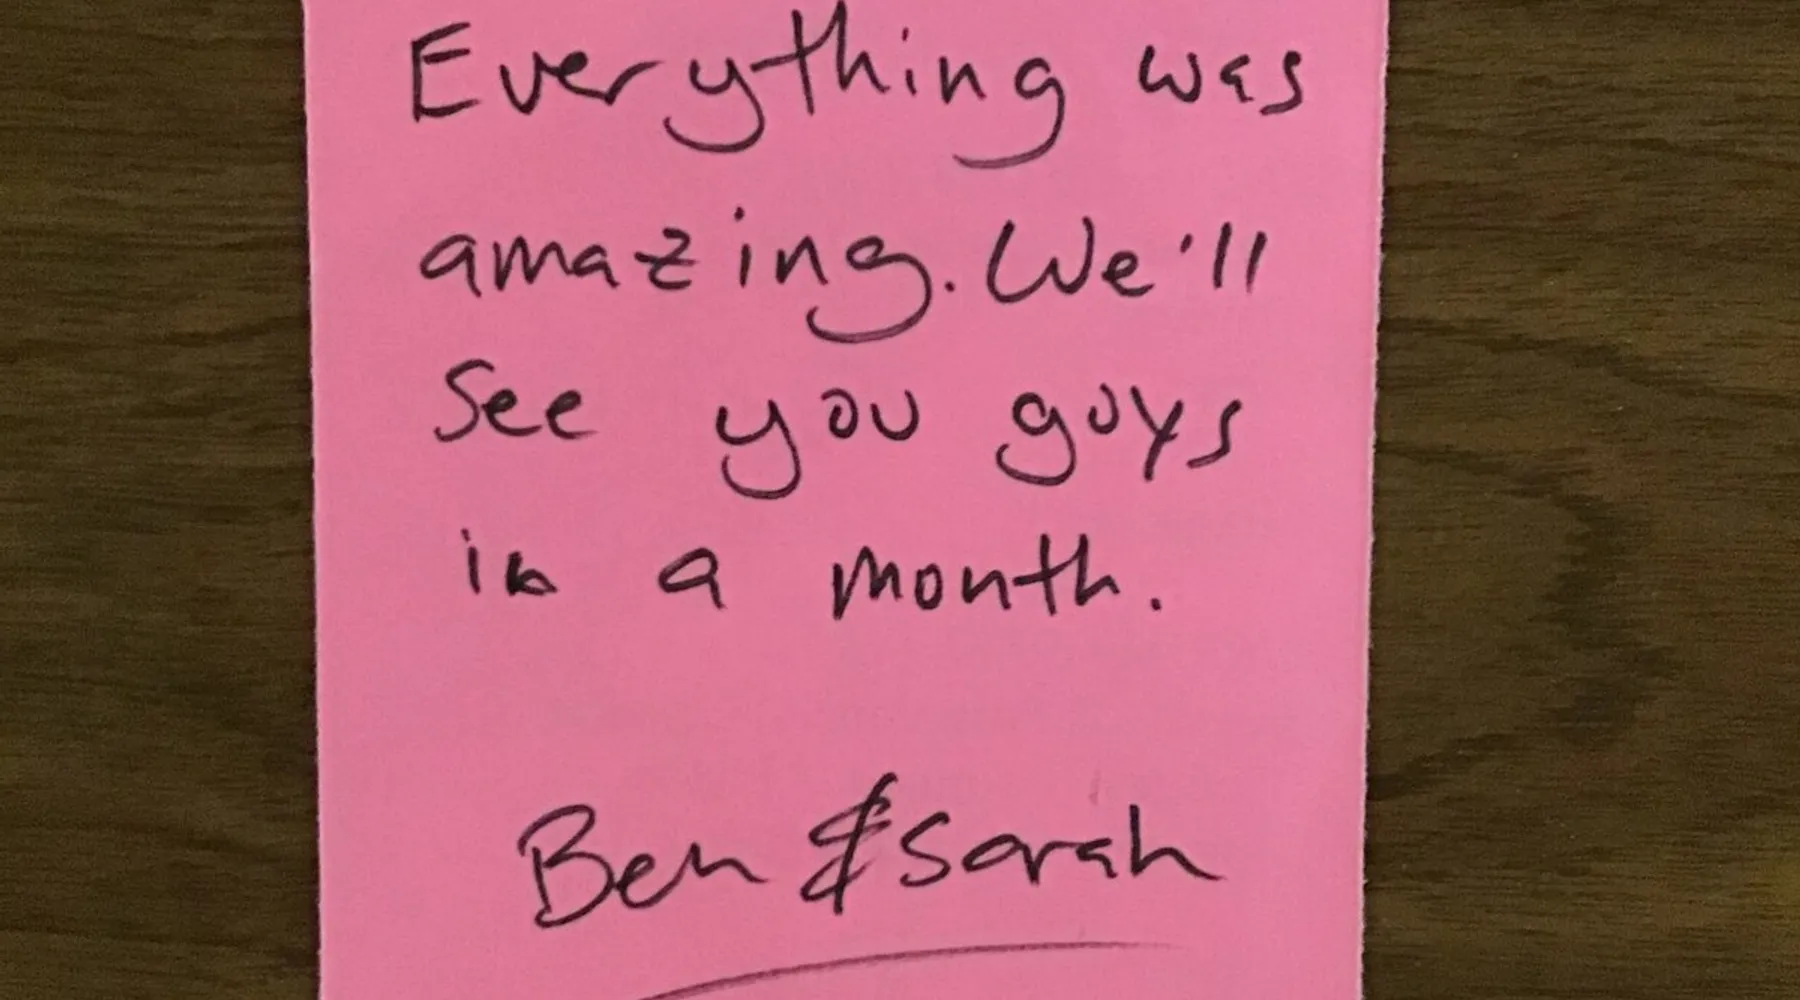 Everything was
amazing. We'll
See you guys
in a month.
Ben & Sarah